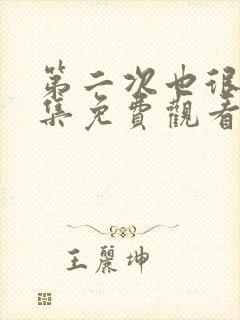 第二次也很
集免費觀看
王麗坤